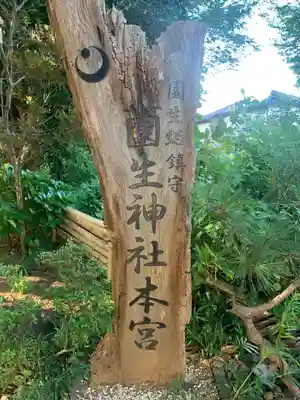 園生総鎮守
園生神社本宮